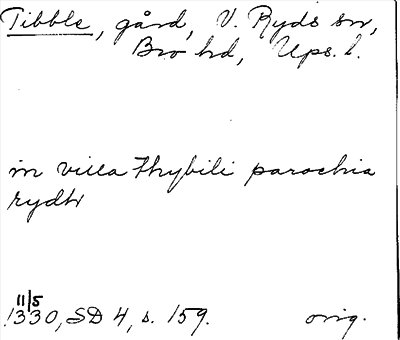 Tibble, gård, V. Ryds sn,
Bro hd, Ups. l.
in villa Thybili parochia
rydh
11/5
1330, SD 4, s. 159. orig.